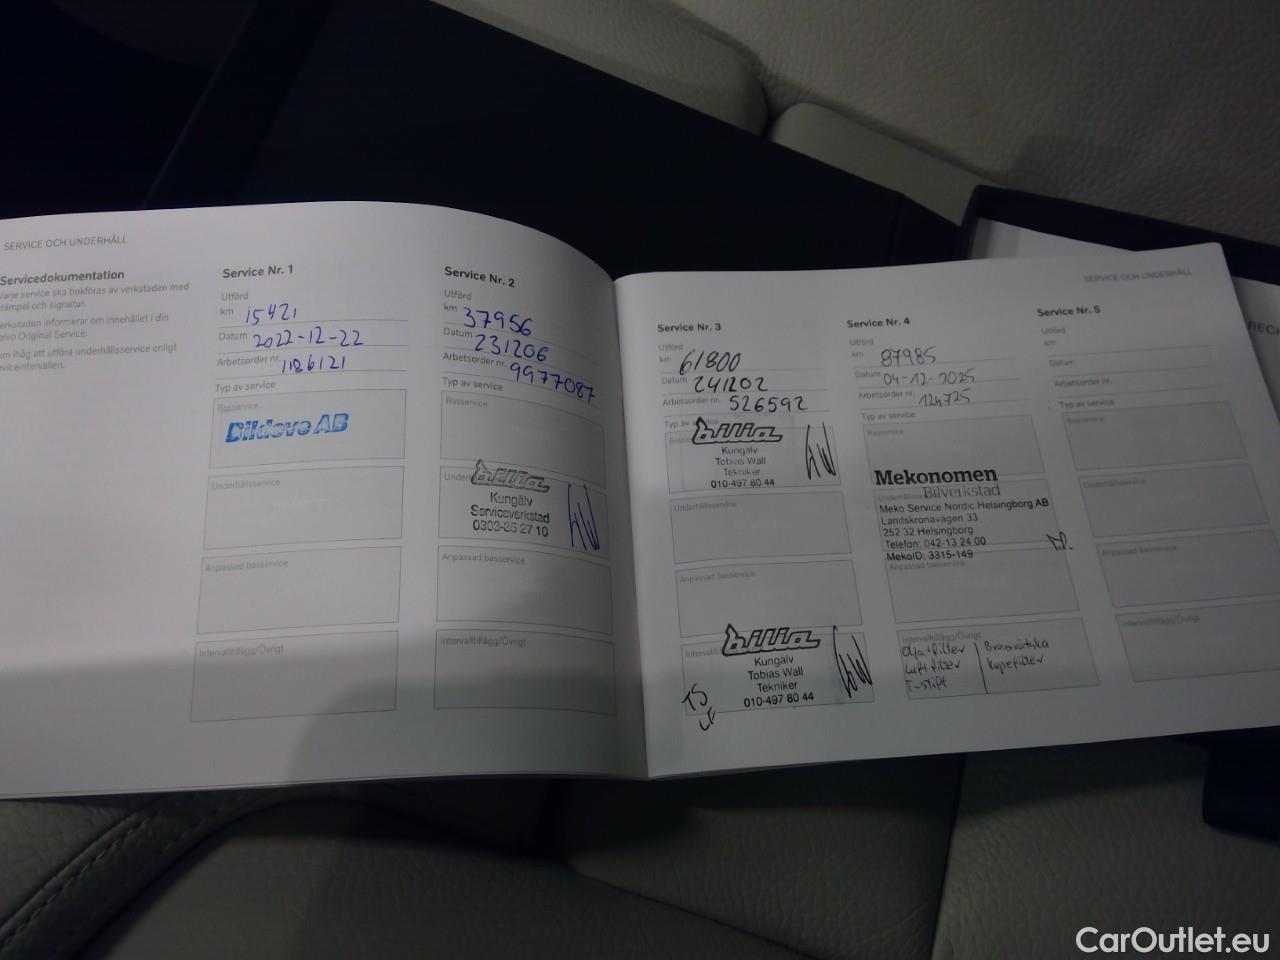 SERVICE OCH UNDERHÅLL
Servicedokumentation
Varje service ska bokföras av verkstaden med
stämpel och signatur.
Verkstaden informerar om innehållet i din
Volvo Original Service.
Kom ihåg att utföra underhållsservice enligt
serviceintervallen.
Service Nr. 1
Utförd
km 15421
Datum 2022-12-22
Arbetsorder nr. 1186121
Typ av service
Basservice
Bildeve AB
Underhållsservice
Anpassad basservice
Intervalltillägg/Övrigt
Service Nr. 2
Utförd
km 37956
Datum 231206
Arbetsorder nr. 9977087
Typ av service
Basservice
bilia
Kungälv
Serviceverkstad
0303-35 27 10
Anpassad basservice
Intervalltillägg/Övrigt
SERVICE OCH UNDERHÅLL
Service Nr. 3
Utförd
km 61800
Datum 241202
Arbetsorder nr. 526592
Typ av service
bilia
Kungälv
Tobias Wall
Tekniker
010-497 80 44
Underhållsservice
Anpassad basservice
bilia
Kungälv
Tobias Wall
Tekniker
010-497 80 44
TS
Service Nr. 4
Utförd
km 87985
Datum 04-12-2025
Arbetsorder nr. 124725
Typ av service
Basservice
Mekonomen
Bilverkstad
Meko Service Nordic Helsingborg AB
Landskronavägen 33
252 32 Helsingborg
Telefon: 042-13 24 00
MekoID: 3315-149
Anpassad basservice
Intervalltillägg/Övrigt
Oljefilter
Luftfilter
T-stift
Bromsvätska
Kupefilter
Service Nr. 5
Utförd
km
Datum
Arbetsorder nr.
Typ av service
Basservice
Underhållsservice
Anpassad basservice
Intervalltillägg/Övrigt
CarOutlet.eu